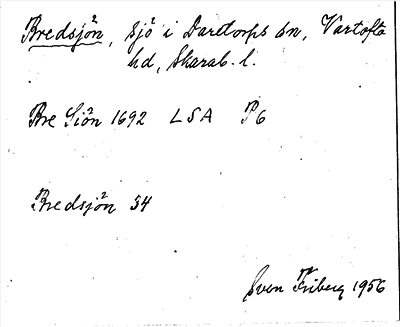 Bredsjön, sjö i Daretorps sn, Vartofta
hd, Skarab. l.
Bre Siön 1692 LSA P6
Bredsjön 54
Sven Friberg 1956